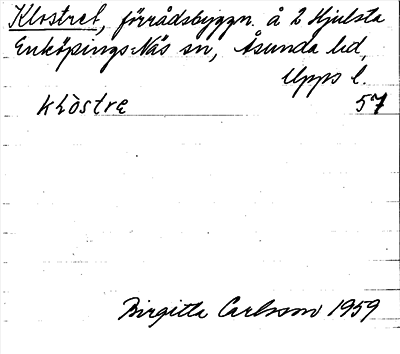 Klostret, förrådsbyggn. å 2 Hjulsta
Enköpings-Näs sn, Åsunda hd,
Upps l.
klòstre 57
Birgitta Carlsson 1959